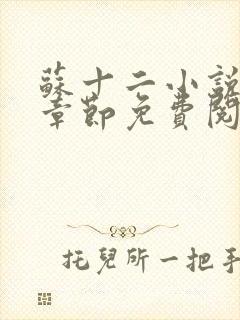 蘇十二小說
章節免費閱
托兒所一把手